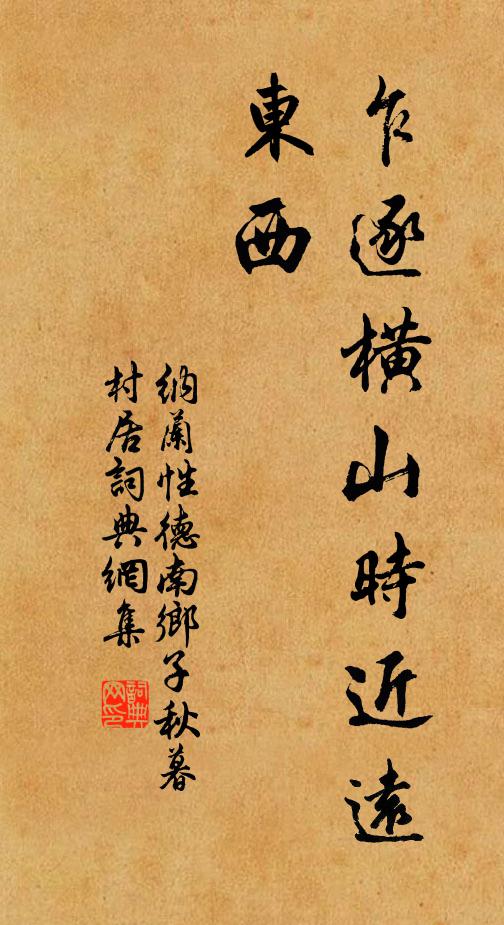 乍逐橫山時近遠
東西
納蘭性德南鄉子秋暮
村居詞典網集
詞典
网印